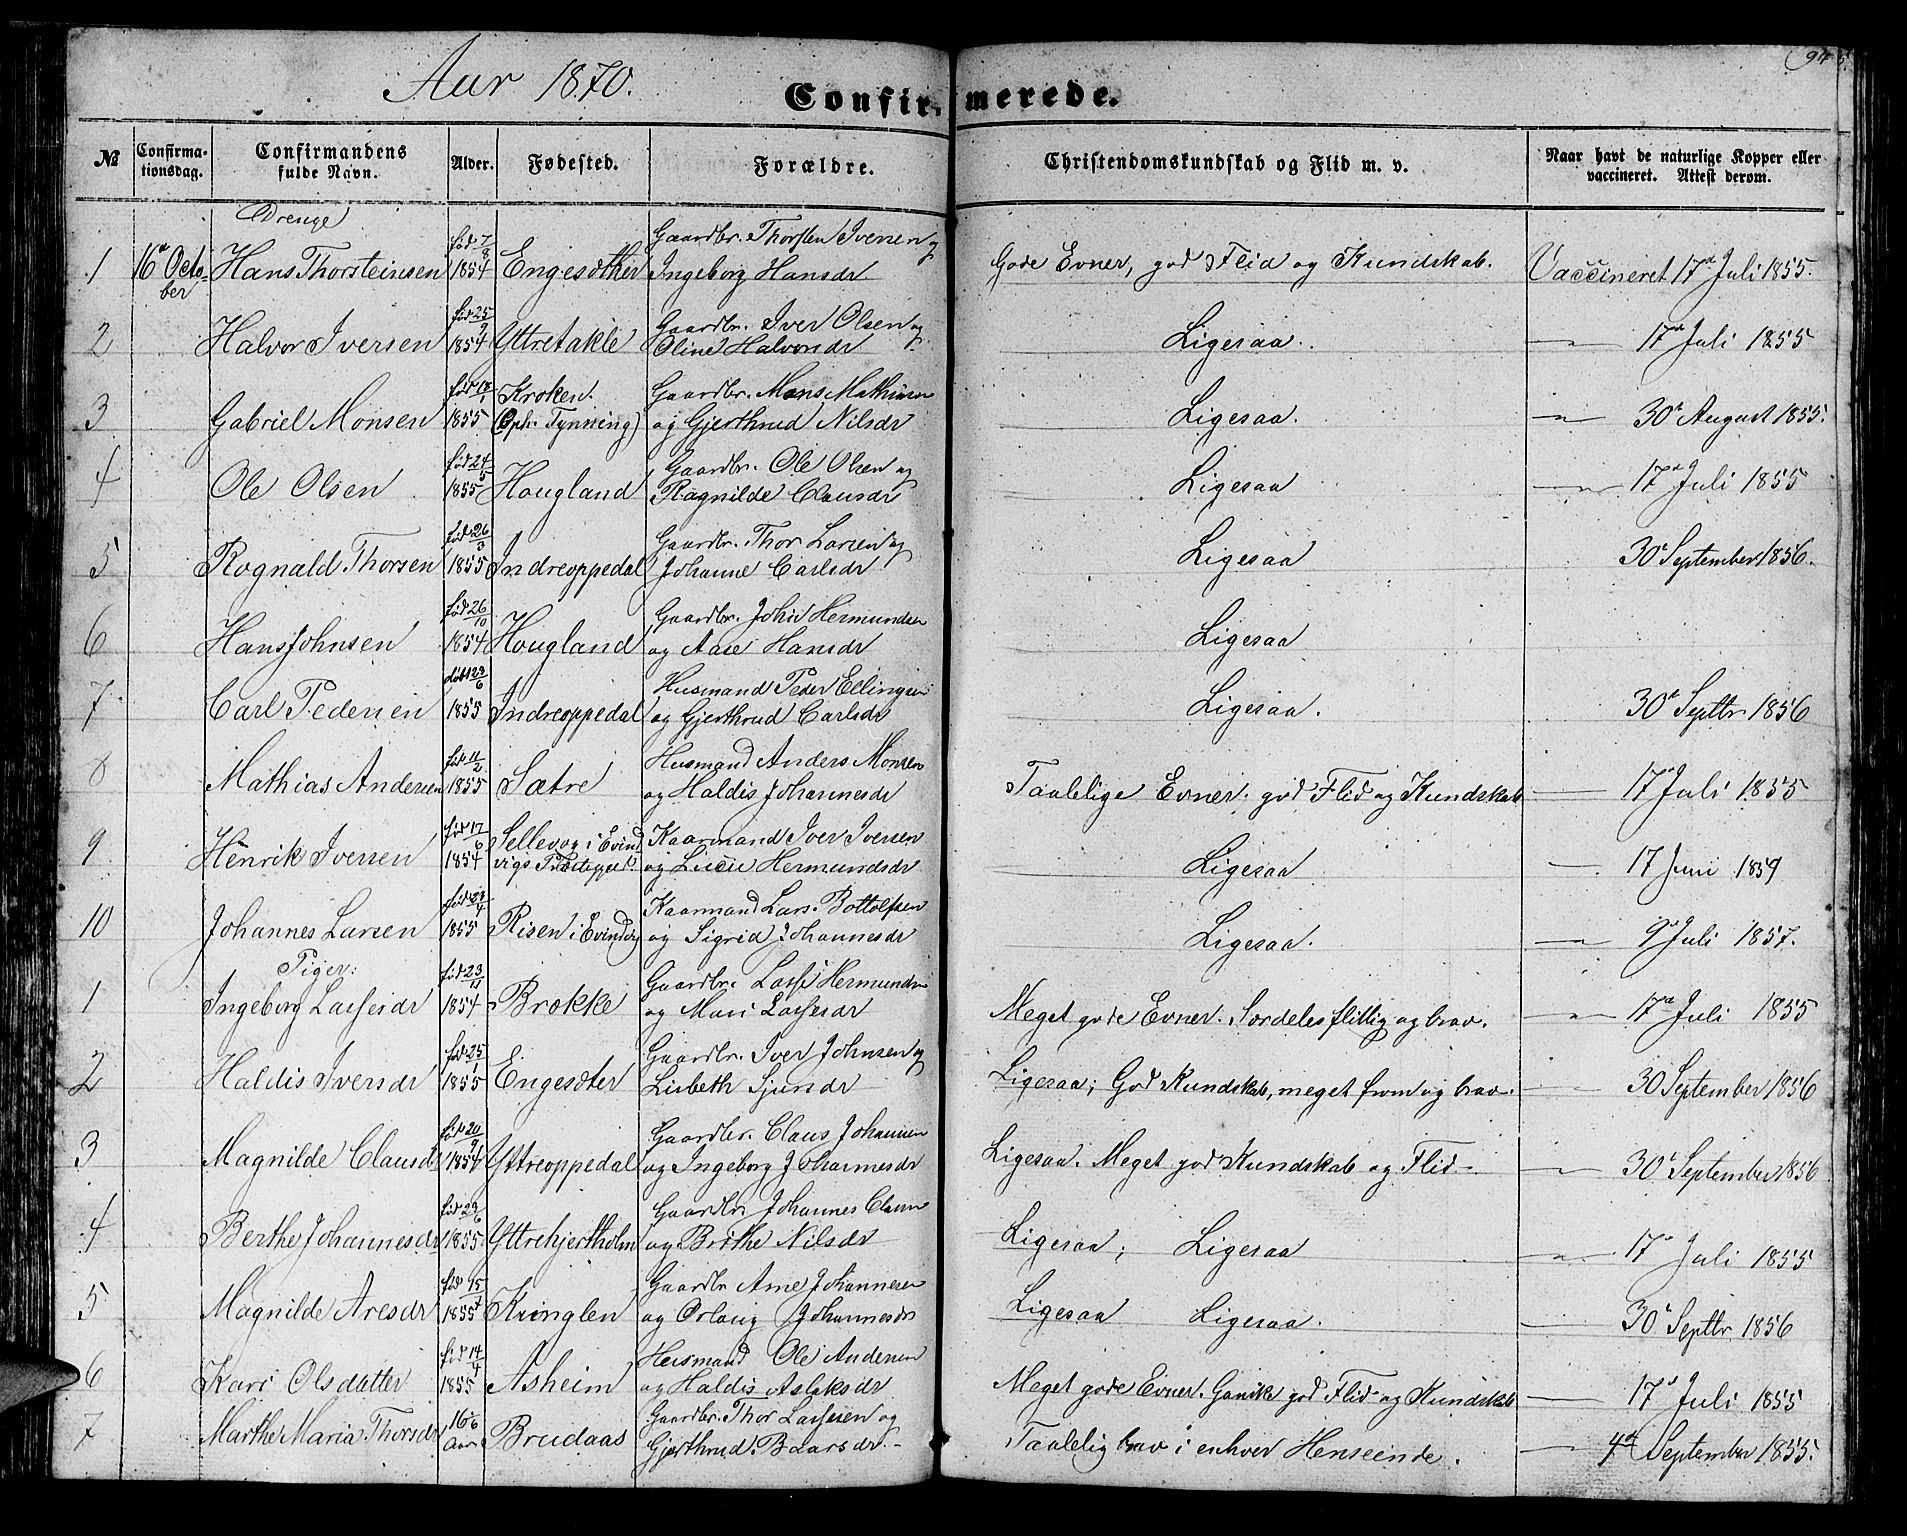 Aar 1870.
Confirmerede.
94
№ Confirmationsdag. Confirmandens fulde Navn. Alder. Fødested. Forældre. Christendomskundskab og Flid m. v. Naar havt de naturlige Kopper eller vaccineret. Attest derom.
Drenge
1 16de October Hans Thorsteinsen født 7/8 1854 Engesæther Gaardbr. Thorsten Iversen og Ingeborg Hansdr Gode Evner, god Flid og Kundskab. Vaccineret 17de Juli 1855.
2 Halvor Iversen født 25/9 1854 Yttretakle Gaardbr. Iver Olsen og Oline Halvorsdr Ligesaa. — " — 17de Juli 1855
3 Gabriel Monsen 1855 Kroken. (Oph. Tynning) Gaardbr. Mons Mathiasen og Gjerthrud Nilsdr Ligesaa. — " — 30te August 1855.
4 Ole Olsen født 24/5 1855 Hougland Gaardbr. Ole Olsen og Ragnilde Clausdr Ligesaa — " — 17de Juli 1855
5 Rognald Thorsen født 26/3 1855 Indreoppedal Gaardbr. Thor Larsen og Johanne Carlsdr Ligesaa 30te September 1856.
6 Hans Johnsen født 26/10 1854 Hougland Gaardbr. John Hermundsen og Aase Hansdr Ligesaa
7 Carl Pedersen født 23/6 1855 Indreoppedal Husmand Peder Ellingsen og Gjerthrud Carlsdr Ligesaa. 30te Septbr 1856
8 Mathias Andersen født 11/2 1855 Sætre Husmand Anders Monsen og Haldis Johannesdr Taalelige Evner; god Flid og Kundskab — 17de Juli 1855
9 Henrik Iversen født 17/6 1854 Sellevog i Evindvigs Præstegjeld Kaarmand Iver Iversen og Lucie Hermundsdr Ligesaa — 17 Juni 1859
10 Johannes Larsen født 23/4 1855 Risen i Evindvig Kaarmand Lars Bottolfsen og Sigrid Johannesdr Ligesaa. — " — 9de Juli 1857.
Piger:
1 Ingeborg Lassesdr født 23/11 1854 Brekke Gaardbr. Lasse Hermundsen og Mari Lassesdr Meget gode Evner. Særdeles flittig og brav. — " — 17de Juli 1855
2 Haldis Iversdr født 25/1 1855 Engesæter Gaardbr. Iver Johnsen og Lisbeth Sjursdr Ligesaa; God Kundskab, meget from og brav. — 30 September 1856
3 Magnilde Clausdr født 20/9 1854 Yttreoppedal Gaardbr. Claus Johannesen og Ingeborg Johannesdr Ligesaa. Meget god Kundskab og Flid — " — 30te September 1856
4 Berthe Johannesdr født 29/6 1855 Yttrehjertholm Gaardbr. Johannes Clausen og Brithe Nilsdr Ligesaa; Ligesaa — " — 17de Juli 1855
5 Magnilde Aresdr fød 15/7 1855 Kringlen Gaardbr Arne Johannesen og Orlaug Johannesdr Ligesaa Ligesaa. — 30te Septbr 1856
6 Kari Olsdatter fød 14/4 1855 Asheim Husmand Ole Andersen og Haldis Aslaksdr Meget gode Evner. Ganske god Flid og Kundskab — 17de Juli 1855
7 Marthe Maria Thorsdr 16 Aar Brudaas Gaardbr. Thor Lassesen og Gjerthrud Baarsdr. Taalelig brav i enhver Henseende. — 4de September 1855.